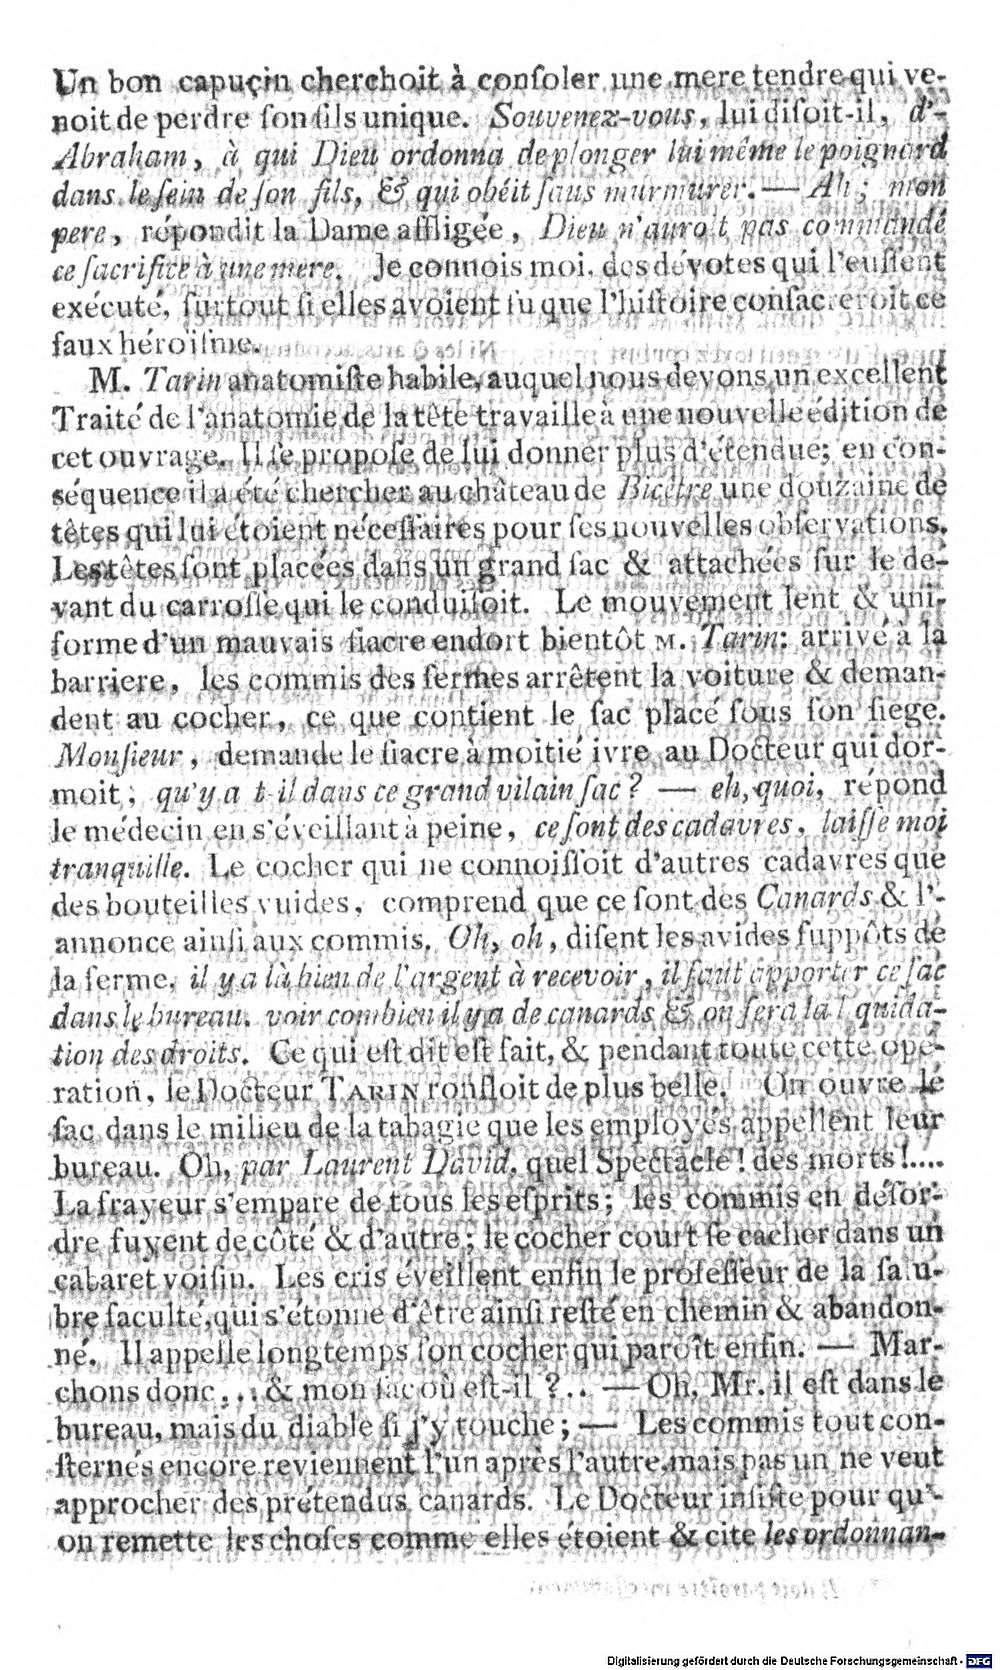 Un bon capuçin cherchoit à conſoler une mere tendre qui ve-
noit de perdre ſon fils unique. Souvenez-vous, lui diſoit-il, d'-
Abraham, à qui Dieu ordonna de plonger lui même le poignard
dans le ſein de ſon fils, & qui obéit ſans murmurer. — Ah; mon
pere, répondit la Dame affligée, Dieu n'auroit pas commandé
ce ſacrifice à une mere. Je connois moi, des dévotes qui l'euſſent
exécuté, ſurtout ſi elles avoient ſu que l'hiſtoire conſacreroit ce
faux héroïſme.
M. Tarin anatomiſte habile, auquel nous devons un excellent
Traité de l'anatomie de la tête travaille à une nouvelle édition de
cet ouvrage. Il ſe propoſe de lui donner plus d'étendue; en con-
séquence il a été chercher au château de Bicêtre une douzaine de
têtes qui lui étoient néceſſaires pour ſes nouvelles obſervations.
Les têtes ſont placées dans un grand ſac & attachées ſur le de-
vant du carroſſe qui le conduiſoit. Le mouvement lent & uni-
forme d'un mauvais fiacre endort bientôt M. Tarin: arrivé à la
barriere, les commis des fermes arrêtent la voiture & deman-
dent au cocher, ce que contient le ſac placé ſous ſon ſiege.
Monſieur, demande le fiacre à moitié ivre au Docteur qui dor-
moit; qu'y a t-il dans ce grand vilain ſac? — eh, quoi, répond
le médecin en s'éveillant à peine, ce ſont des cadavres, laiſſe moi
tranquille. Le cocher qui ne connoiſſoit d'autres cadavres que
des bouteilles vuides, comprend que ce ſont des Canards & l'-
annonce ainſi aux commis. Oh, oh, diſent les avides ſuppôts de
la ferme, il y a là bien de l'argent à recevoir, il faut apporter ce ſac
dans le bureau, voir combien il y a de canards & on fera la liquida-
tion des droits. Ce qui eſt dit eſt fait, & pendant toute cette opé-
ration, le Docteur TARIN ronfloit de plus belle. On ouvre le
ſac dans le milieu de la tabagie que les employés appellent leur
bureau. Oh, par Laurent David, quel Spectacle! des morts!....
La frayeur s'empare de tous les eſprits; les commis en déſor-
dre fuyent de côté & d'autre; le cocher court ſe cacher dans un
cabaret voiſin. Les cris éveillent enfin le profeſſeur de la ſalu-
bre faculté, qui s'étonne d'être ainſi reſté en chemin & abandon-
né. Il appelle longtemps ſon cocher qui paroît enfin. — Mar-
chons donc... & mon ſac où eſt-il?.. — Oh, Mr. il eſt dans le
bureau, mais du diable ſi j'y touche; — Les commis tout con-
ſternés encore reviennent l'un après l'autre, mais pas un ne veut
approcher des prétendus canards. Le Docteur inſiſte pour qu'-
on remette les choſes comme elles étoient & cite les ordonnan-
Digitalisierung gefördert durch die Deutsche Forschungsgemeinschaft - DFG